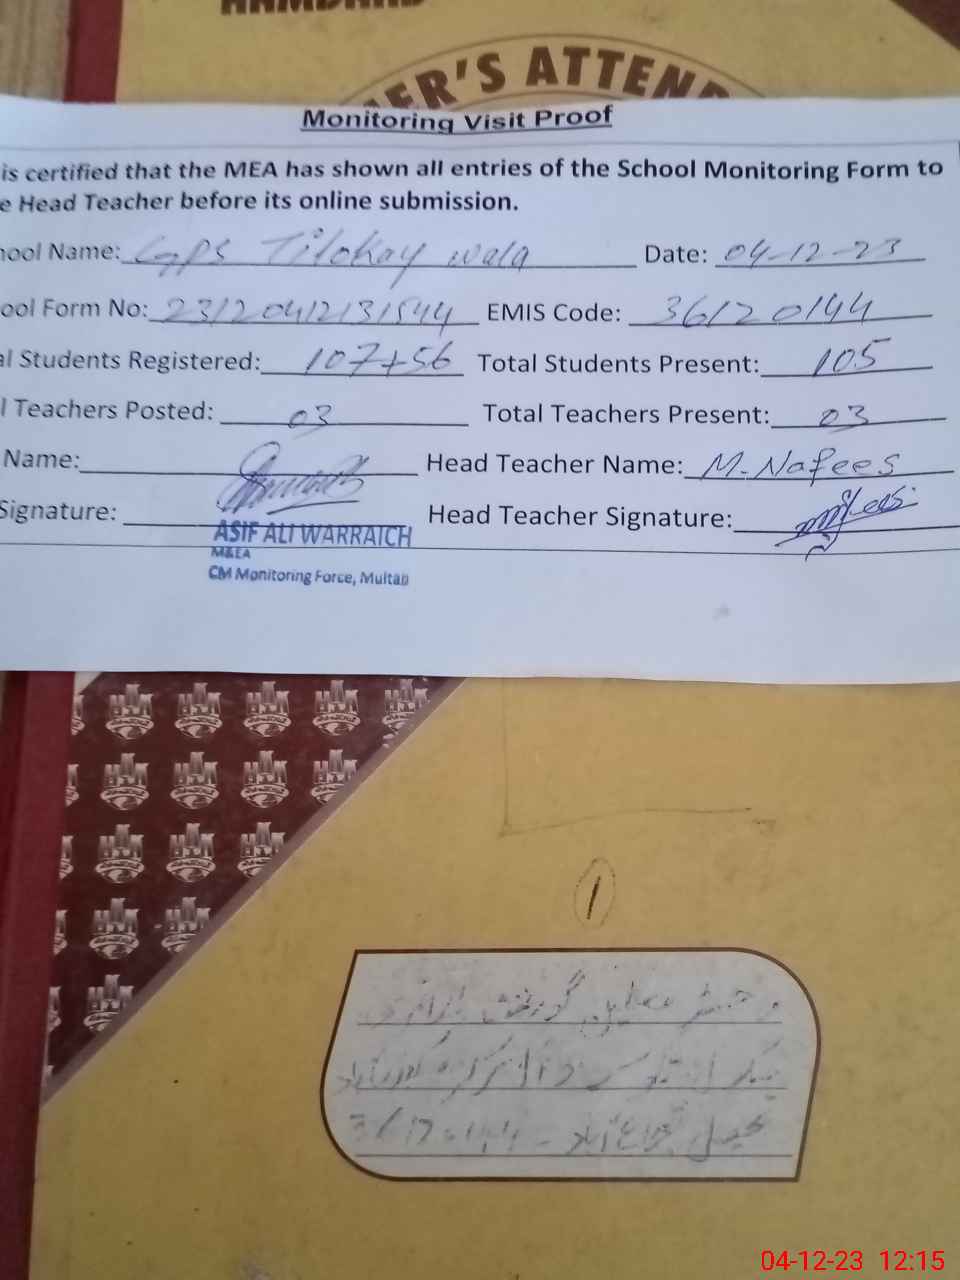 HAMDARD
ER'S ATTEND
Monitoring Visit Proof
is certified that the MEA has shown all entries of the School Monitoring Form to
e Head Teacher before its online submission.
hool Name: GPS Tilokay wala Date: 04-12-23
ool Form No: 23120412131544 EMIS Code: 36120144
al Students Registered: 107+56 Total Students Present: 105
l Teachers Posted: 03 Total Teachers Present: 03
Name: Head Teacher Name: M. Nafees
Signature: Head Teacher Signature:
ASIF ALI WARRAICH
M&EA
CM Monitoring Force, Multan
1
04-12-23 12:15